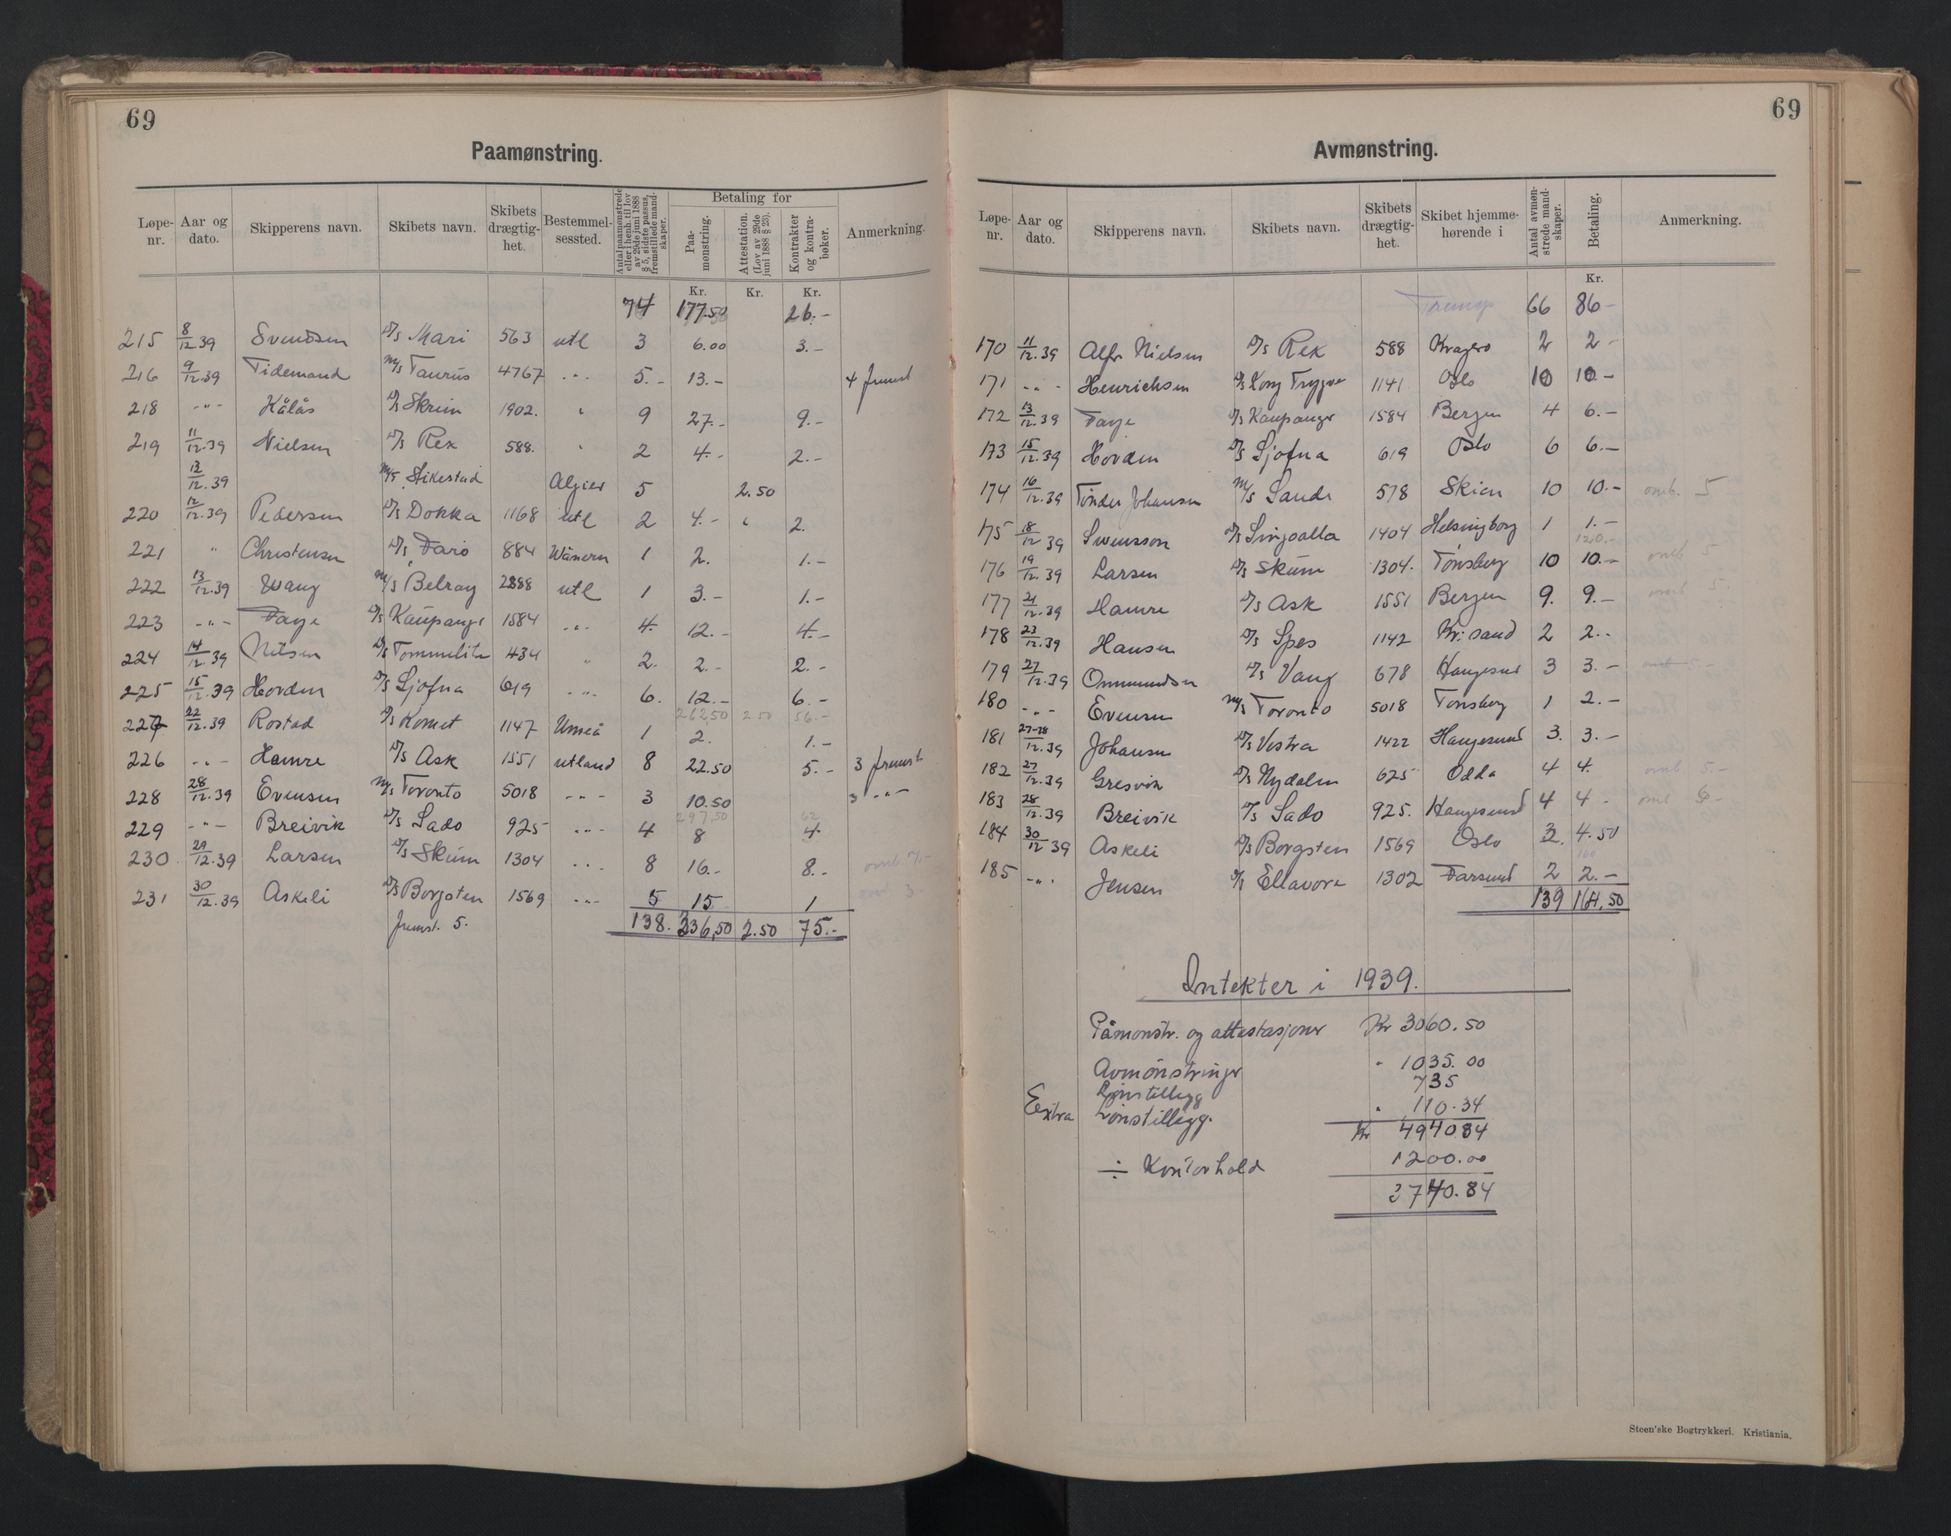 69
Paamønstring.
Løpe-nr. | Aar og dato. | Skipperens navn. | Skibets navn. | Skibets drægtig-het. | Bestemmel-sessted. | Antal paamønstrede eller i henh. til lov av 29de juni 1888 § 5, sidste passus, fremstillede mand-skaper. | Betaling for | Paa-mønstring. | Attestation. (Lov av 29de juni 1888 § 23). | Kontrakter og kontra-bøker. | Anmerkning.
Kr. Kr. Kr.
74 177.50 26.-
215 8/12.39 Svendsen D/S Mari 563 utl 3 6.00 3.-
216 9/12.39 Tidemand M/S Taurus 4767 -"- 5.- 13.- 4 fremst
218 -"- Kålås D/S Skrim 1902. " 9 27.- 9.-
219 11/12.39 Nielsen D/S Rex 588. " 2 4.- 2.-
12/12.39 M/T Stikestad Algier 5 2.50
220 12/12.39 Pedersen D/S Dokka 1168 utl 2 4.- " 2.
221 " Christensen D/S Farö 884 Wänern 1 2. 1.-
222 13/12.39 Wang M/S Belray 2888 utl 1 3.- 1.-
223 -"- Faye D/S Kaupanger 1584 -"- 4. 12.- 4.-
224 14/12.39 Nilsen D/S Tommeliten 434 " 2. 2.- 2.-
225 15/12.39 Hovden D/S Sjofna 619 -"- 6. 12.- 6.-
262.50 2.50 56.-
227 22/12.39 Rostad D/S Komet 1147 Umeå 1 2. 1.-
226 -"- Hamre D/S Ask 1551 utland 8 22.50 5.- 3 fremst
228 28/12.39 Evensen M/S Toronto 5018 -"- 3 10.50 3 -"-
297,50 62
229 -"- Breivik D/S Sado 925 -"- 4 8 4
230 29/12.39 Larsen D/S Skum 1304 -"- 8 16.- 8.-
231 30/12.39 Askeli D/S Borgsten 1569 -"- 5 15 1
fremst. 5. 138. 336,50 2.50 75.-
69
Avmønstring.
Løpe-nr. | Aar og dato. | Skipperens navn. | Skibets navn. | Skibets drægtig-het. | Skibet hjemme-hørende i | Antal avmøn-strede mand-skaper. | Betaling. | Anmerkning.
Kr.
Transp 66 86-
170 11/12.39 Alfr Nielsen D/S Rex 588 Kragerø 2 2-
171 -"- Henrichsen D/S Kong Trygve 1141 Oslo 10 10-
172 13/12.39 Faye D/S Kaupanger 1584 Bergen 4 6.-
173 15/12.39 Hovden D/S Sjofna 619 Oslo 6 6.-
174 16/12.39 Tønder Johansen M/S Sandr 578 Skien 10 10.- omb. 5
175 18/12 39 Swensson D/S Singoalla 1404 Helsingborg 1 1.-
120.-
176 19/12.39 Larsen D/S Skum 1304. Tønsberg 10 10.- omb 5
177 21/12.39 Hamre D/S Ask 1551 Bergen 9. 9.- omb 5
178 23/12.39 Hansen D/S Spes 1142 Kr.sand 2 2.-
179 27/12.39 Ommundsen D/S Vang 678 Haugesund 3 3.- omb 5-
180 -"- Evensen M/S Toronto 5018 Tønsberg 1 2.-
181 27-28/12.39 Johansen D/S Vestra 1422 Haugesund 3. 3.-
182 27/12.39 Gresvik D/S Nydalen 625 Odda 4 4. omb 5.-
183 28/12.39 Breivik D/S Sado 925. Haugesund 4 4- omb 6-
184 30/12 39 Askeli D/S Borgsten 1569 Oslo 3. 4.50
160
185 -"- Jensen D/S Ellavore 1302 Farsund 2 2.-
139 164,50
Intekter i 1939.
Påmønstr. og attestasjoner Kr 3060.50
Avmønstringer " 1035.00
Lønstillegg 735
Extra Lønstillegg. " 110.34
Kr 4940.84
÷ Kontorhold 1200.00
3740.84
Steen'ske Bogtrykkeri. Kristiania.